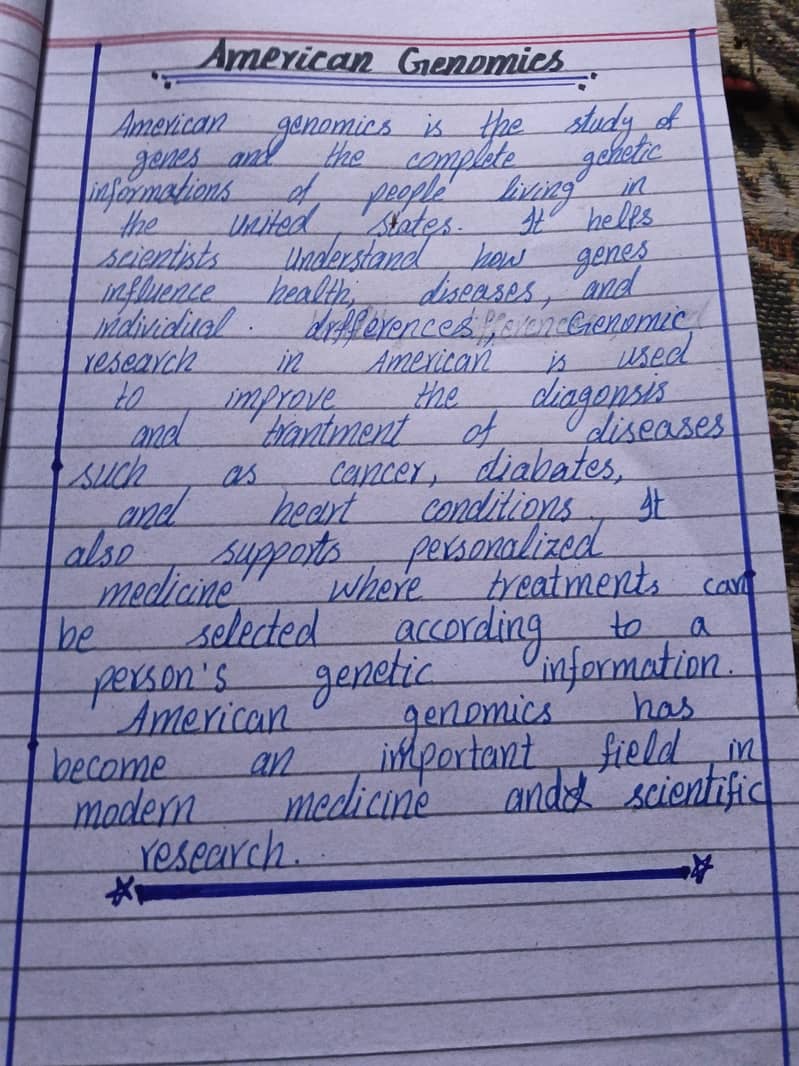 American Genomics
American genomics is the study of
genes and the complete genetic
informations of people living in
the united states. It helps
scientists understand how genes
influence health, diseases, and
individual. drfferences, Genomic
research in American is used
to improve the diagonsis
and trantment of diseases
such as cancer, diabates,
and heart conditions. It
also supports personalized
medicine where treatments can
be selected according to a
person's genetic information.
American genomics has
become an important field in
modern medicine and scientific
research.